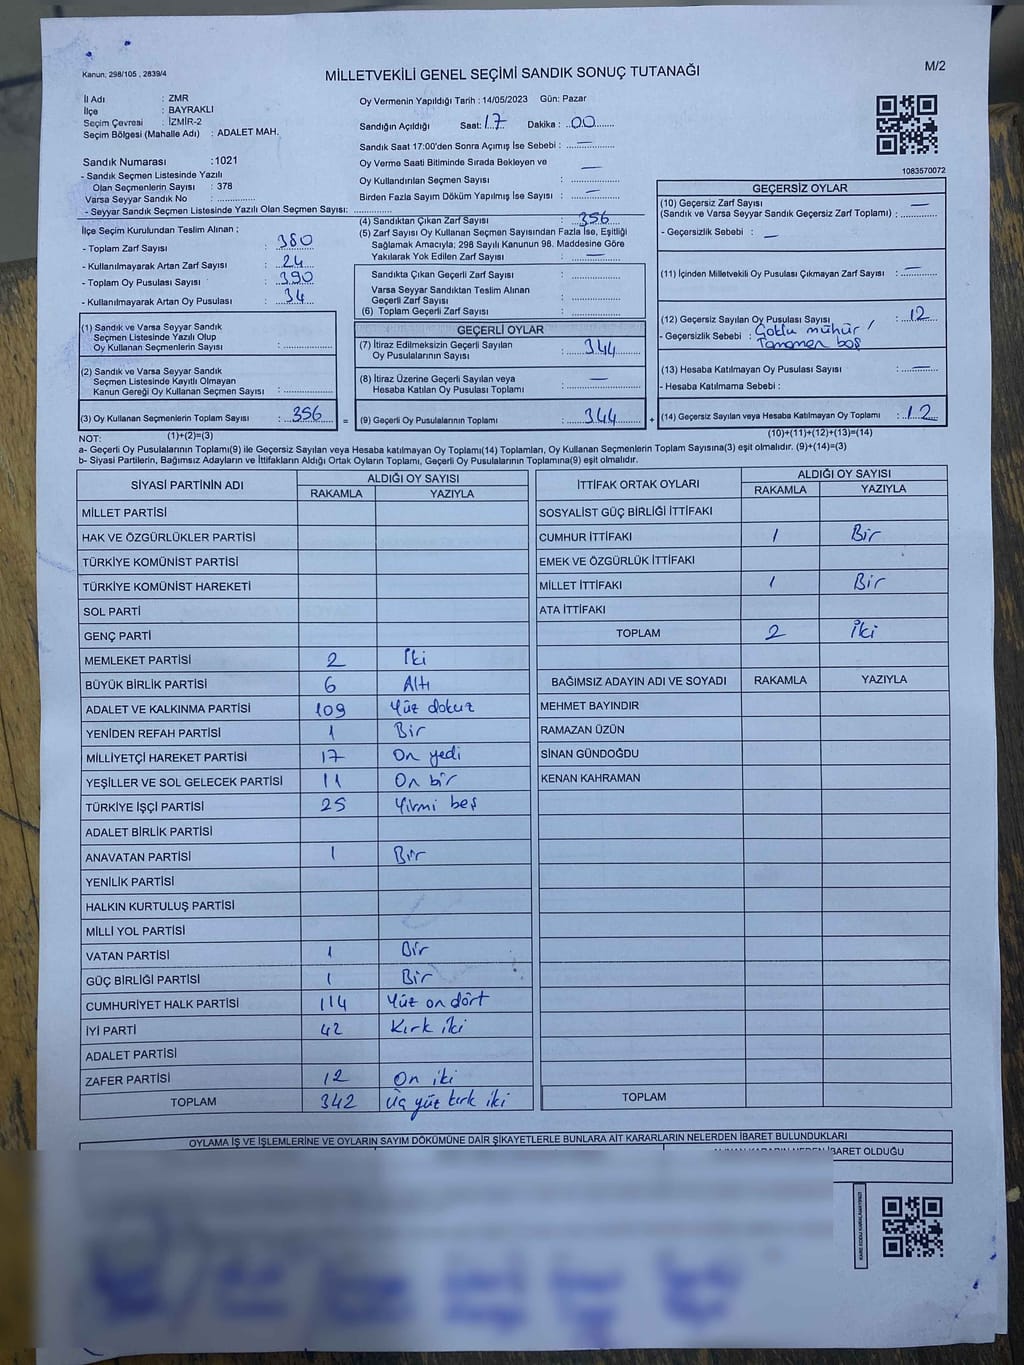 Kanun, 298/105 , 2839/4
MİLLETVEKİLİ GENEL SEÇİMİ SANDIK SONUÇ TUTANAĞI
M/2
İl Adı : ZMR
İlçe : BAYRAKLI
Seçim Çevresi : İZMİR-2
Seçim Bölgesi (Mahalle Adı) : ADALET MAH.
Sandık Numarası : 1021
- Sandık Seçmen Listesinde Yazılı
Olan Seçmenlerin Sayısı : 378
Varsa Seyyar Sandık No :
- Seyyar Sandık Seçmen Listesinde Yazılı Olan Seçmen Sayısı:
İlçe Seçim Kurulundan Teslim Alınan ;
- Toplam Zarf Sayısı : 380
- Kullanılmayarak Artan Zarf Sayısı : 24
- Toplam Oy Pusulası Sayısı : 390
- Kullanılmayarak Artan Oy Pusulası : 34
(1) Sandık ve Varsa Seyyar Sandık
Seçmen Listesinde Yazılı Olup
Oy Kullanan Seçmenlerin Sayısı :
(2) Sandık ve Varsa Seyyar Sandık
Seçmen Listesinde Kayıtlı Olmayan
Kanun Gereği Oy Kullanan Seçmen Sayısı :
(3) Oy Kullanan Seçmenlerin Toplam Sayısı : 356
(1)+(2)=(3)
Oy Vermenin Yapıldığı Tarih : 14/05/2023 Gün: Pazar
Sandığın Açıldığı Saat: 17 Dakika : 00
Sandık Saat 17:00'den Sonra Açımış İse Sebebi : —
Oy Verme Saati Bitiminde Sırada Bekleyen ve —
Oy Kullandırılan Seçmen Sayısı :
Birden Fazla Sayım Döküm Yapılmış İse Sayısı : —
(4) Sandıktan Çıkan Zarf Sayısı : 356
(5) Zarf Sayısı Oy Kullanan Seçmen Sayısından Fazla İse, Eşitliği
Sağlamak Amacıyla; 298 Sayılı Kanunun 98. Maddesine Göre
Yakılarak Yok Edilen Zarf Sayısı : —
Sandıkta Çıkan Geçerli Zarf Sayısı :
Varsa Seyyar Sandıktan Teslim Alınan
Geçerli Zarf Sayısı :
(6) Toplam Geçerli Zarf Sayısı :
GEÇERLİ OYLAR
(7) İtiraz Edilmeksizin Geçerli Sayılan
Oy Pusulalarının Sayısı : 344
(8) İtiraz Üzerine Geçerli Sayılan veya
Hesaba Katılan Oy Pusulası Toplamı : —
= (9) Geçerli Oy Pusulalarının Toplamı : 344 +
1083570072
GEÇERSİZ OYLAR
(10) Geçersiz Zarf Sayısı —
(Sandık ve Varsa Seyyar Sandık Geçersiz Zarf Toplamı) :
- Geçersizlik Sebebi : —
(11) İçinden Milletvekili Oy Pusulası Çıkmayan Zarf Sayısı : —
(12) Geçersiz Sayılan Oy Pusulası Sayısı : 12
- Geçersizlik Sebebi : Çoklu mühür /
Tamamen boş
(13) Hesaba Katılmayan Oy Pusulası Sayısı : —
- Hesaba Katılmama Sebebi :
(14) Geçersiz Sayılan veya Hesaba Katılmayan Oy Toplamı : 12
(10)+(11)+(12)+(13)=(14)
NOT:
a- Geçerli Oy Pusulalarının Toplamı(9) ile Geçersiz Sayılan veya Hesaba katılmayan Oy Toplamı(14) Toplamları, Oy Kullanan Seçmenlerin Toplam Sayısına(3) eşit olmalıdır. (9)+(14)=(3)
b- Siyasi Partilerin, Bağımsız Adayların ve İttifakların Aldığı Ortak Oyların Toplamı, Geçerli Oy Pusulalarının Toplamına(9) eşit olmalıdır.
SİYASİ PARTİNİN ADI ALDIĞI OY SAYISI
RAKAMLA YAZIYLA
MİLLET PARTİSİ
HAK VE ÖZGÜRLÜKLER PARTİSİ
TÜRKİYE KOMÜNİST PARTİSİ
TÜRKİYE KOMÜNİST HAREKETİ
SOL PARTİ
GENÇ PARTİ
MEMLEKET PARTİSİ 2 İki
BÜYÜK BİRLİK PARTİSİ 6 Altı
ADALET VE KALKINMA PARTİSİ 109 Yüz dokuz
YENİDEN REFAH PARTİSİ 1 Bir
MİLLİYETÇİ HAREKET PARTİSİ 17 On yedi
YEŞİLLER VE SOL GELECEK PARTİSİ 11 On bir
TÜRKİYE İŞÇİ PARTİSİ 25 Yirmi beş
ADALET BİRLİK PARTİSİ
ANAVATAN PARTİSİ 1 Bir
YENİLİK PARTİSİ
HALKIN KURTULUŞ PARTİSİ
MİLLİ YOL PARTİSİ
VATAN PARTİSİ 1 Bir
GÜÇ BİRLİĞİ PARTİSİ 1 Bir
CUMHURİYET HALK PARTİSİ 114 Yüz on dört
İYİ PARTİ 42 Kırk iki
ADALET PARTİSİ
ZAFER PARTİSİ 12 On iki
TOPLAM 342 Üç yüz kırk iki
İTTİFAK ORTAK OYLARI ALDIĞI OY SAYISI
RAKAMLA YAZIYLA
SOSYALİST GÜÇ BİRLİĞİ İTTİFAKI
CUMHUR İTTİFAKI 1 Bir
EMEK VE ÖZGÜRLÜK İTTİFAKI
MİLLET İTTİFAKI 1 Bir
ATA İTTİFAKI
TOPLAM 2 İki
BAĞIMSIZ ADAYIN ADI VE SOYADI RAKAMLA YAZIYLA
MEHMET BAYINDIR
RAMAZAN ÜZÜN
SİNAN GÜNDOĞDU
KENAN KAHRAMAN
TOPLAM
OYLAMA İŞ VE İŞLEMLERİNE VE OYLARIN SAYIM DÖKÜMÜNE DAİR ŞİKAYETLERLE BUNLARA AİT KARARLARIN NELERDEN İBARET BULUNDUKLARI
İBARET OLDUĞU